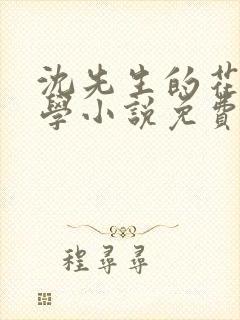 沈先生的花
學小說免費
程尋尋